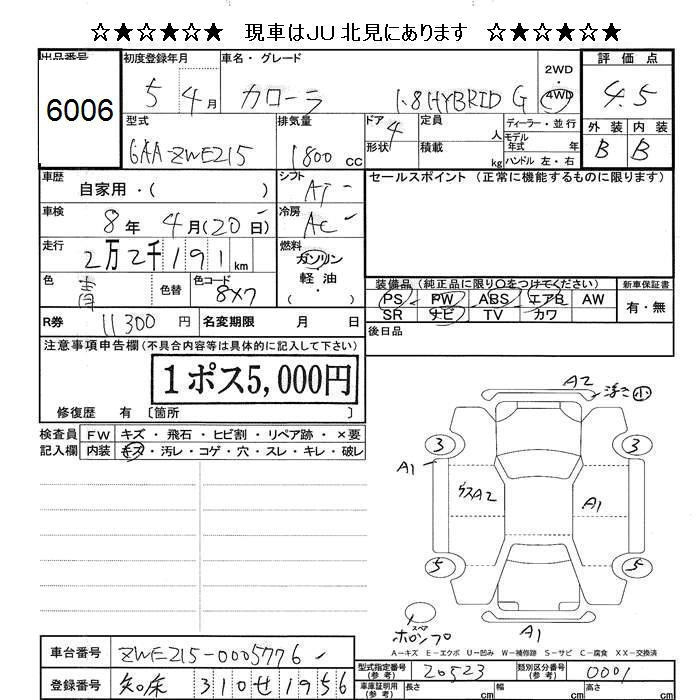 ☆★☆★☆★ 現車はJU北見にあります ☆★☆★☆★
出品番号 初度登録年月 車名・グレード 2WD・4WD 評価点
6006 5 4月 カローラ 1.8HYBRID G 4.5
型式 排気量 ドア 4 形状 定員 人 積載 kg ディーラー・並行 モデル年式 年式 ハンドル 左・右 外装 内装
6AA-ZWE215 1800 cc B B
車歴 自家用・( ) シフト AT セールスポイント(正常に機能するものに限ります)
車検 8年 4月(20日) 冷房 AC
走行 2万2千191km 燃料 ガソリン・軽油・( )
色 青 色替 色コード 8X7
装備品(純正品に限り○をつけてください) 新車保証書
PS PW ABS エアB AW 有・無
SR ナビ TV カワ
R券 11300円 名変期限 月 日 後日品
注意事項申告欄(不具合内容等は具体的に記入して下さい)
1ポス5,000円
修復歴 有〔箇所 〕
検査員記入欄 FW キズ・飛石・ヒビ割・リペア跡・×要
内装 キズ・汚レ・コゲ・穴・スレ・キレ・破レ
A2 浮き小
3 3
A1
ガラスA2 A1
5 5
スペア
ホロンプ A1
A-キズ E-エクボ U-凹み W-補修跡 S-サビ C-腐食 XX-交換済
車台番号 ZWE215-0005776
型式指定番号(参考) 20523 類別区分番号(参考) 0001
登録番号 知床 310 せ 1956
車庫証明用(参考) 長さ cm 幅 cm 高さ cm